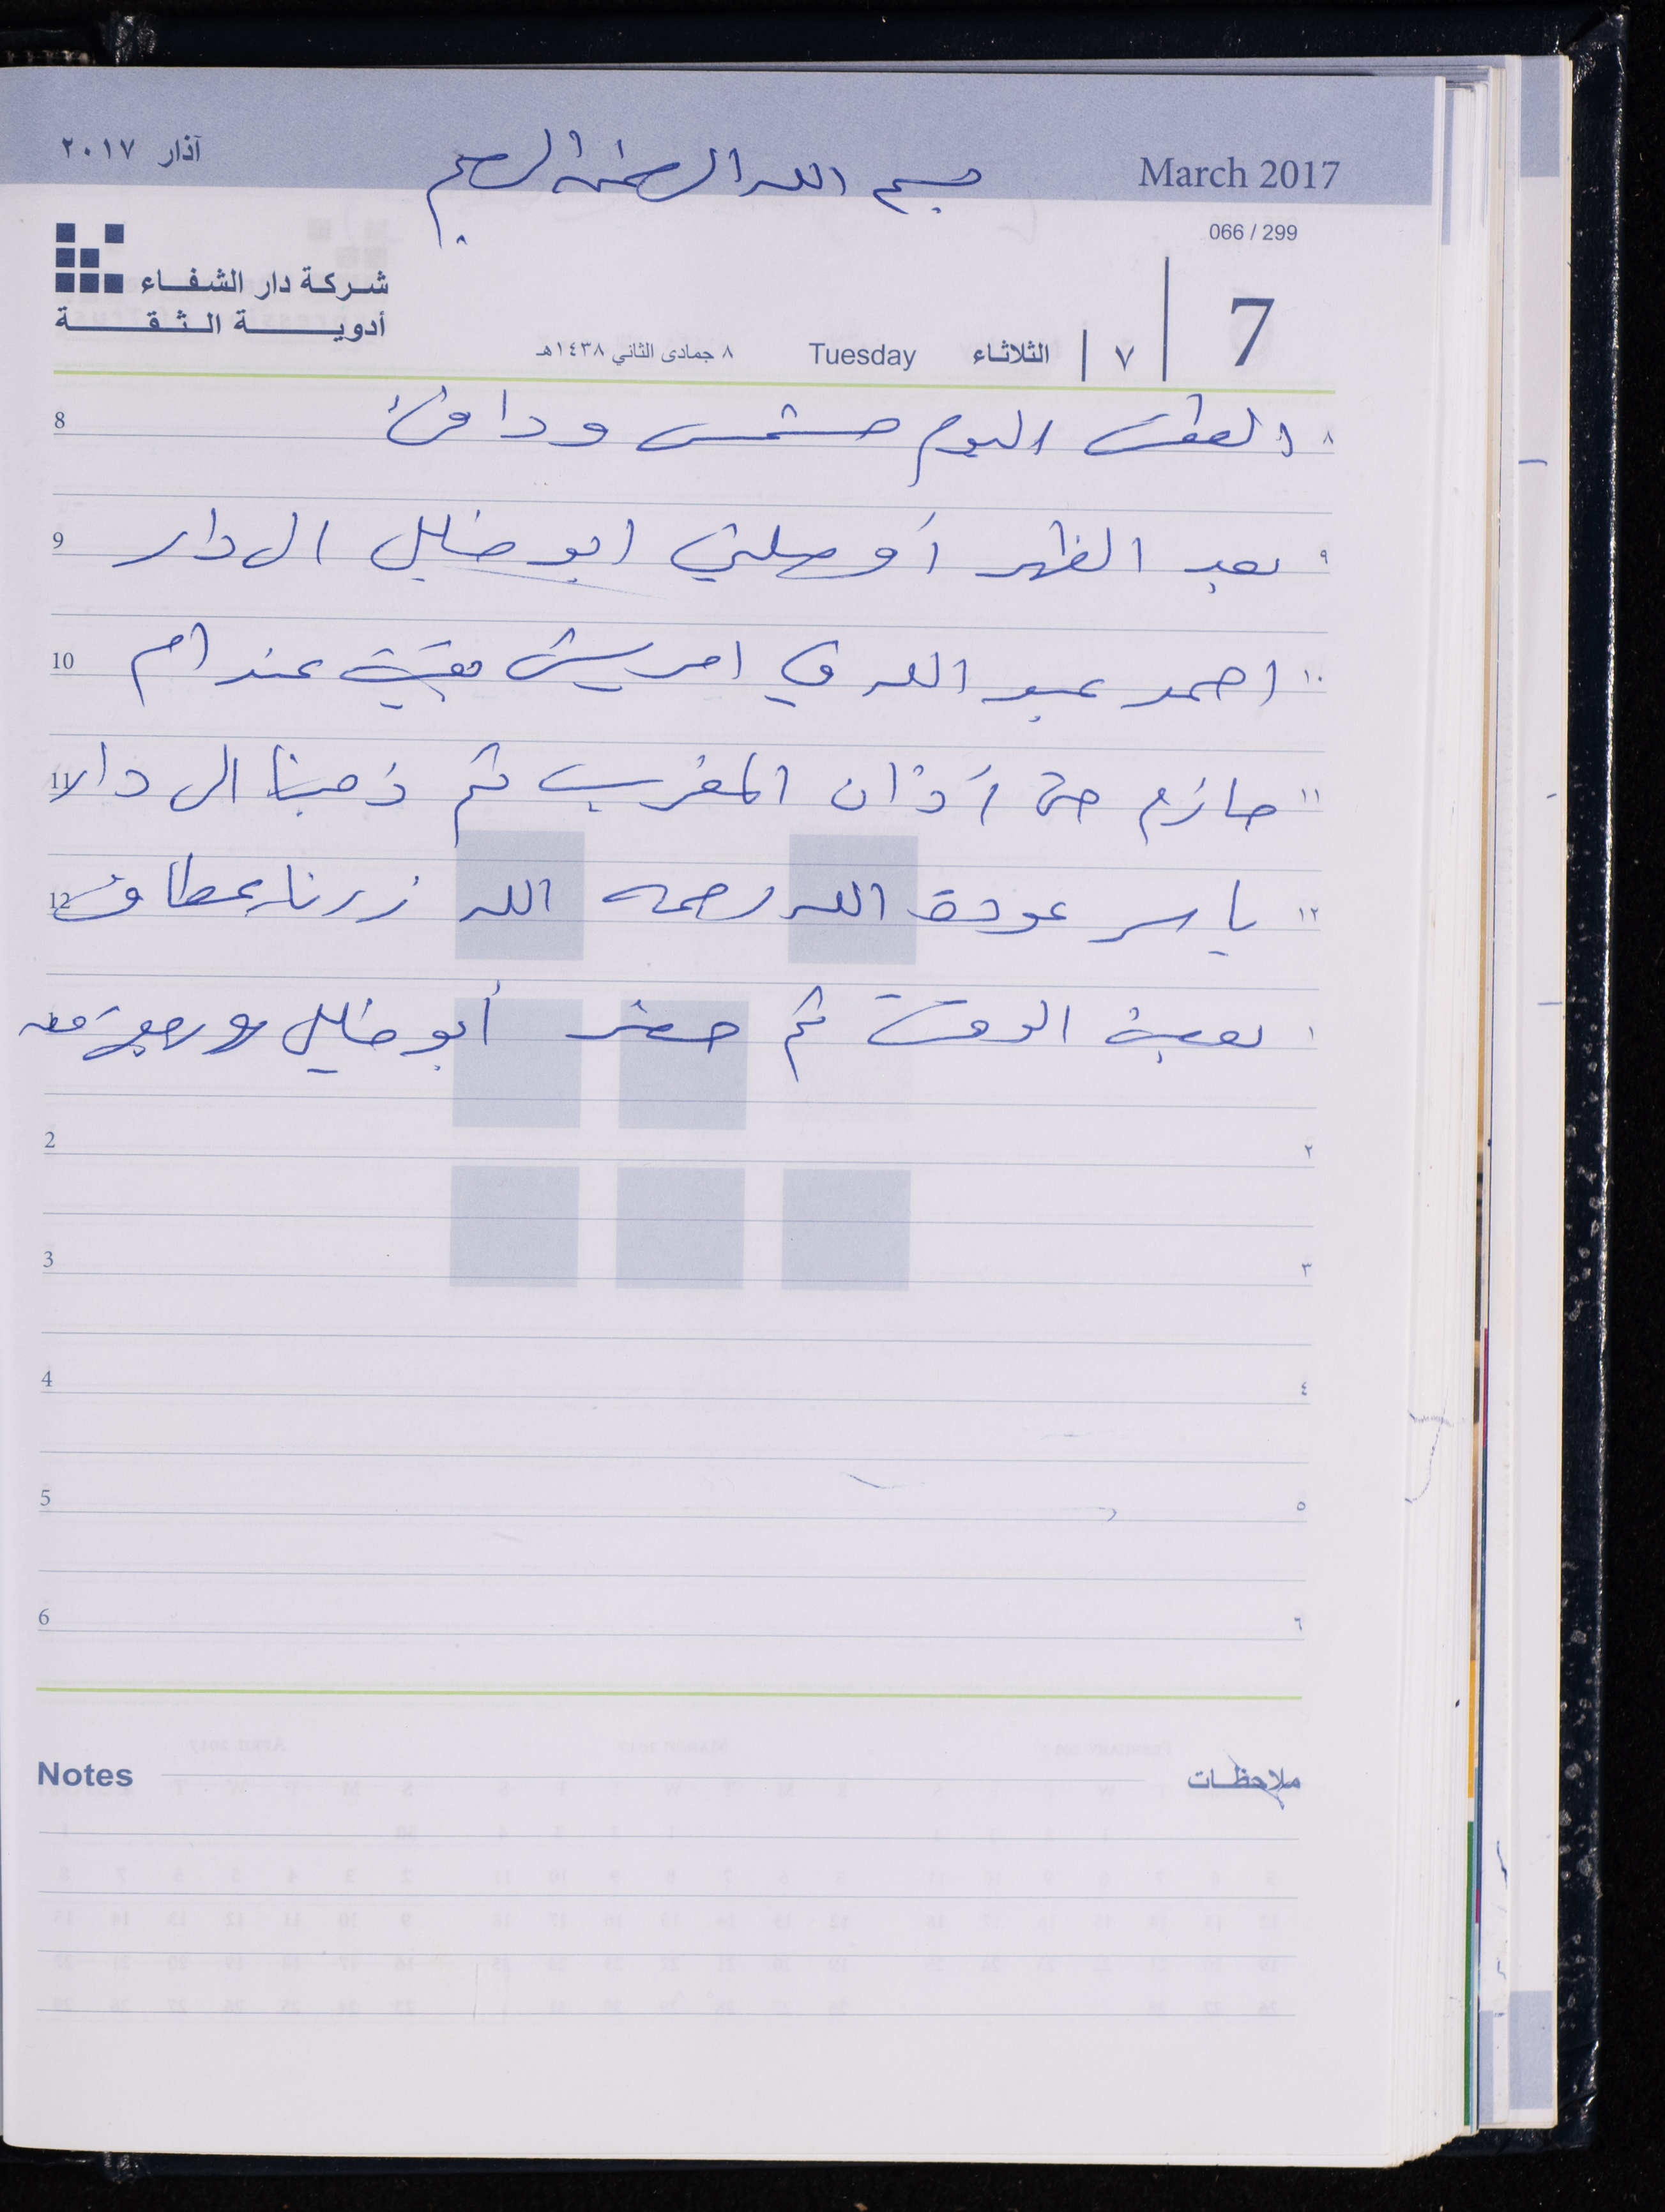 آذار ٢٠١٧
بسم الله الرحمن الرحيم
March 2017
066 / 299
شركة دار الشفاء
أدوية الثقة
7
٧
الثلاثاء
Tuesday
٨ جمادى الثاني ١٤٣٨هـ
8 الطقس اليوم مشمس ودافئ ٨
9 بعد الظهر أوصلني ابو خليل الى دار ٩
10 احمد عبد الله في امريش بقيت عند ام ١٠
11 حازم حتى أذان المغرب ثم ذهبنا الى دار ١١
12 ياسر عودة الله رحمه الله زرنا عطاف ١٢
بعض الوقت ثم حضر أبو خليل ورجعت معه ١
2 ٢
3 ٣
4 ٤
5 ٥
6 ٦
Notes ملاحظات